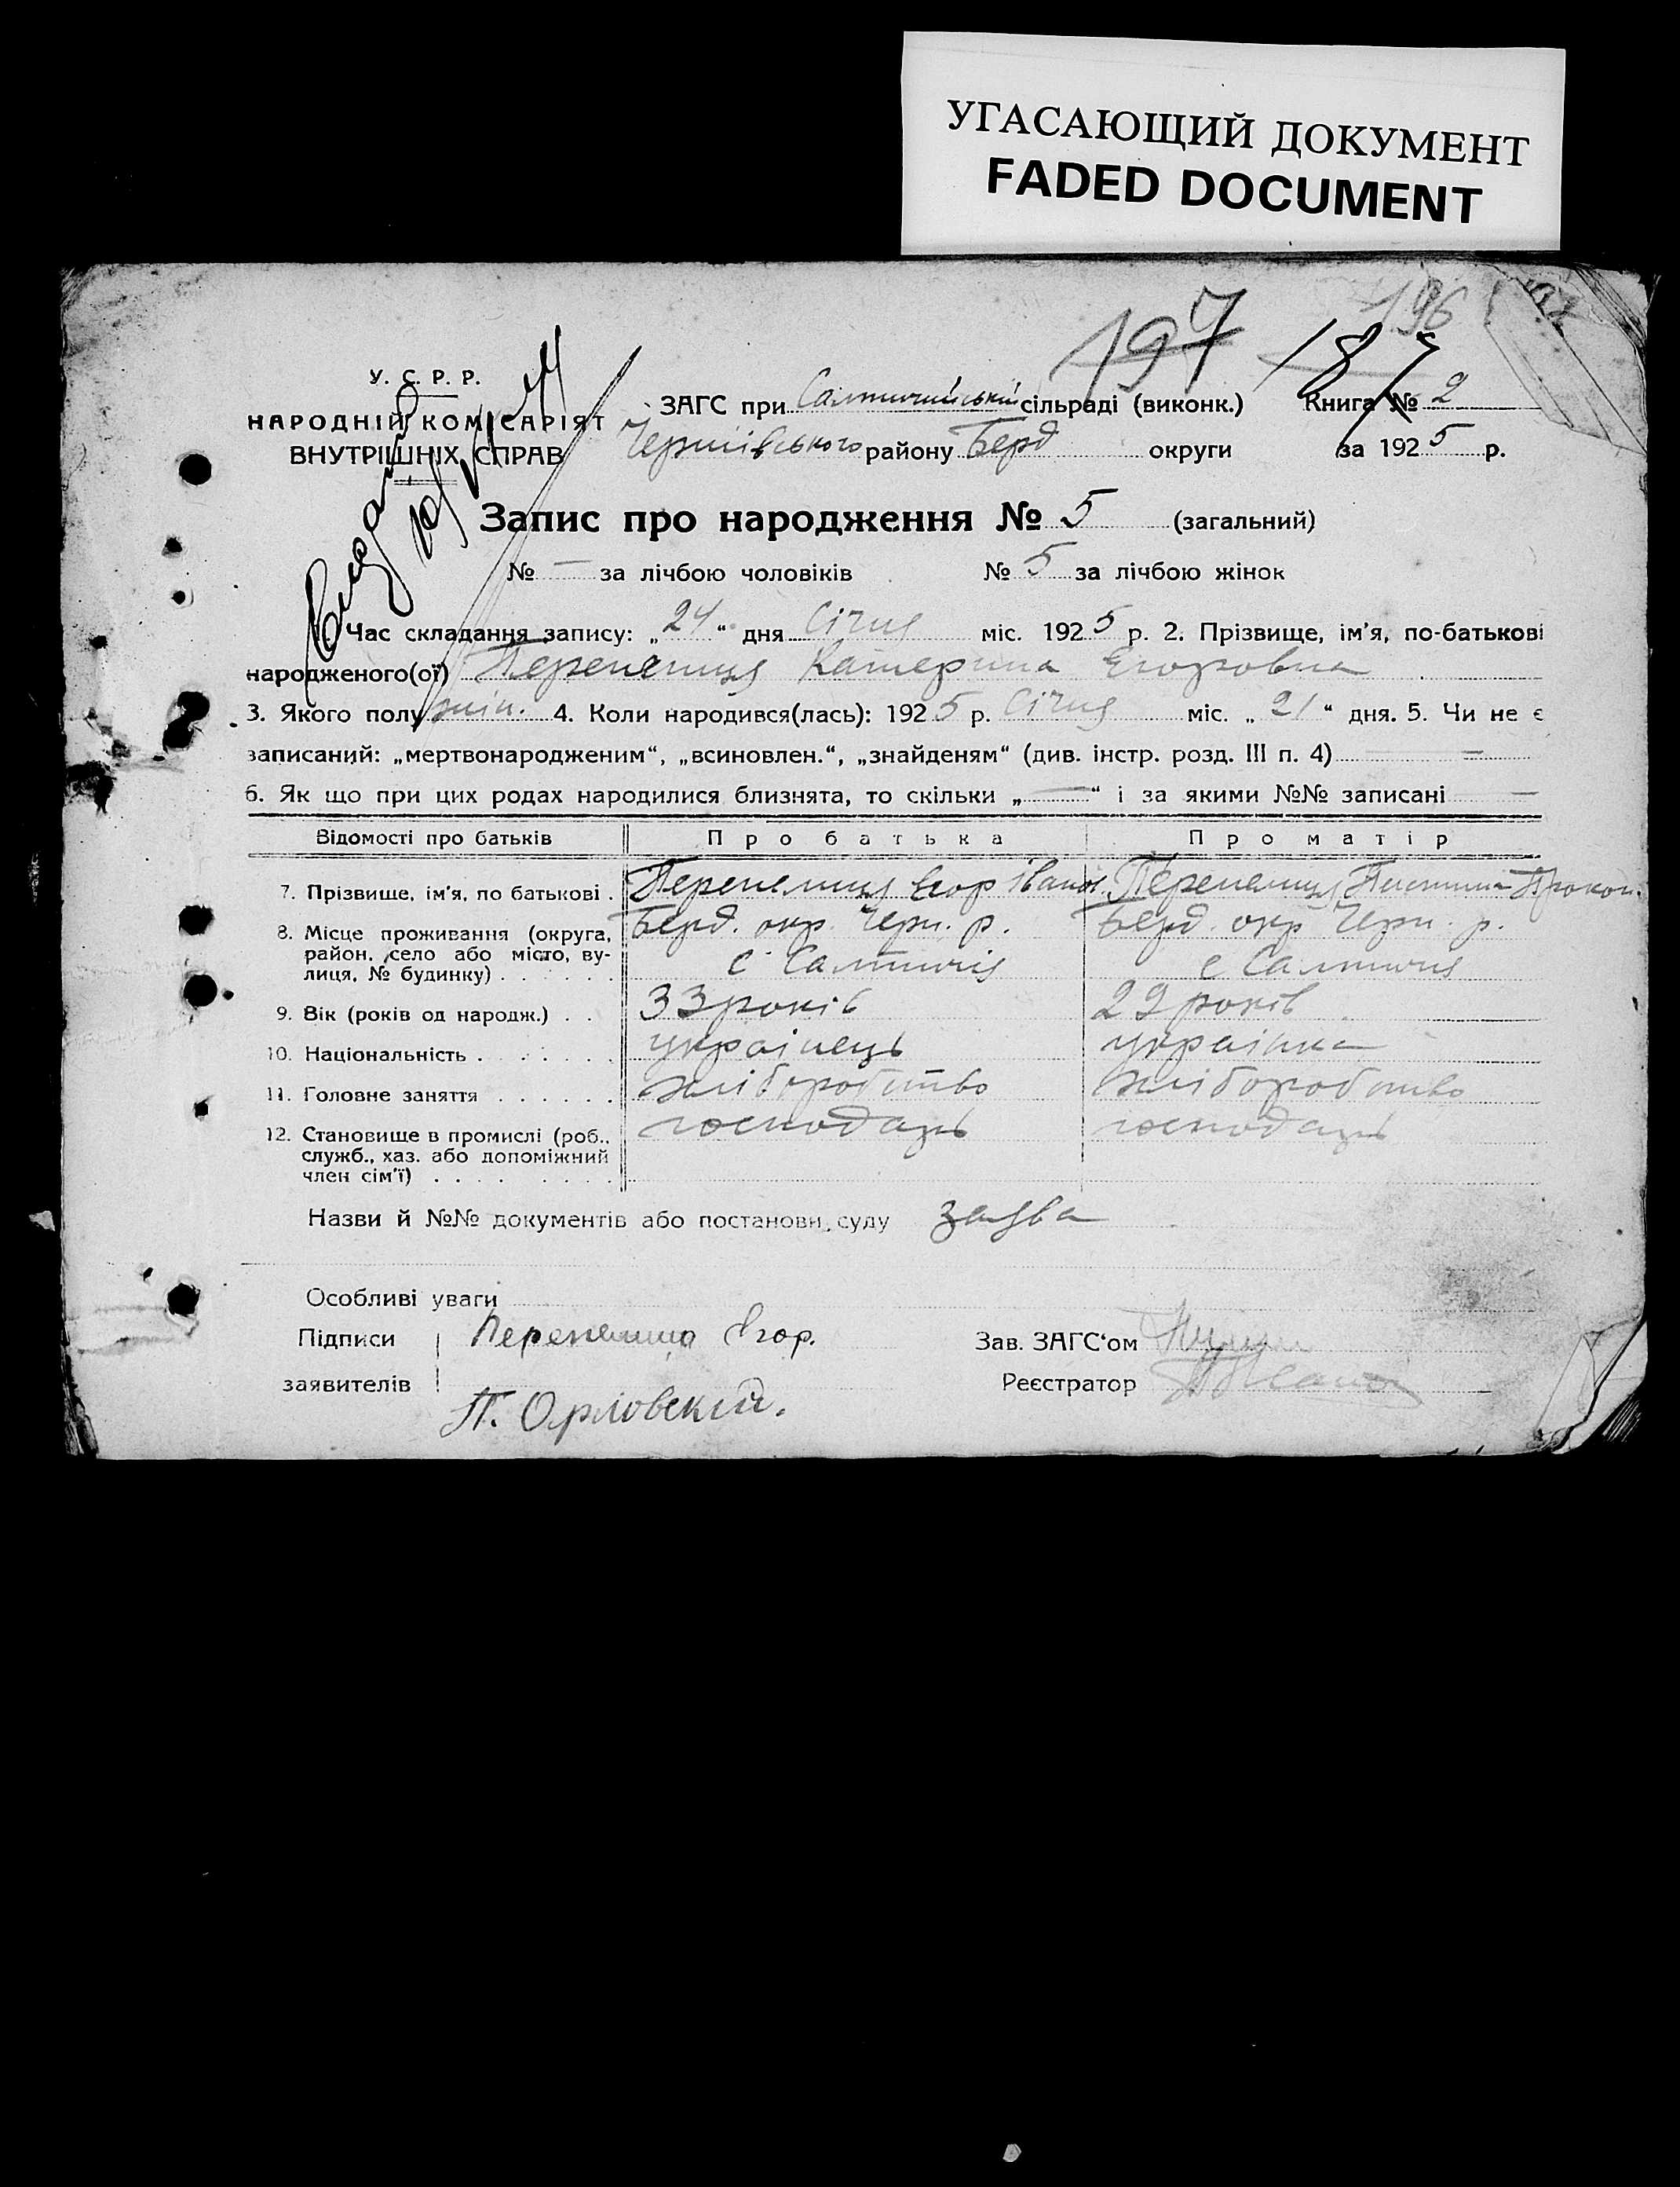 УГАСАЮЩИЙ ДОКУМЕНТ
FADED DOCUMENT
197
196
187
У. С. Р. Р.
НАРОДНІЙ КОМІСАРІЯТ
ВНУТРІШНІХ СПРАВ
ЗАГС при Салтичийській сільраді (виконк.) Книга № 2
Чернiiвського району Берд округи за 1925 р.
Запис про народження № 5 (загальний)
№ — за лічбою чоловіків № 5 за лічбою жінок
Час складання запису: „24“ дня Січня міс. 1925 р. 2. Прізвище, ім'я, по-батькові
народженого(ої) Перепелиця Катерина Егоровна
3. Якого полу жін. 4. Коли народився(лась): 1925 р. Січня міс. „21“ дня. 5. Чи не є
записаний: „мертвонародженим“, „всиновлен.“, „знайденям“ (див. інстр. розд. III п. 4) —
6. Як що при цих родах народилися близнята, то скільки „—“ і за якими №№ записані —
Відомості про батьків Про батька Про матір
7. Прізвище, ім'я, по батькові . Перепелиця Егор Іванов. Перепелиця Пистина Прокоп.
8. Місце проживання (округа, Берд. окр. Черн. р. Берд. окр Черн. р.
район, село або місто, ву-
лиця, № будинку) . . . . . с Салтичія с Салтичия
9. Вік (років од народж.) . . 33 років 29 років
10. Національність . . . . . . українець українка
11. Головне заняття . . . . . . хліборобство хліборобство
12. Становище в промислі (роб., господарь господарь
служб., хаз. або допоміжний
член сім'ї) . . . . . . . .
Назви й №№ документів або постанови суду заява
Особливі уваги
Підписи Перепелица Егор. Зав. ЗАГС'ом
заявителів Реєстратор
П. Орловский.